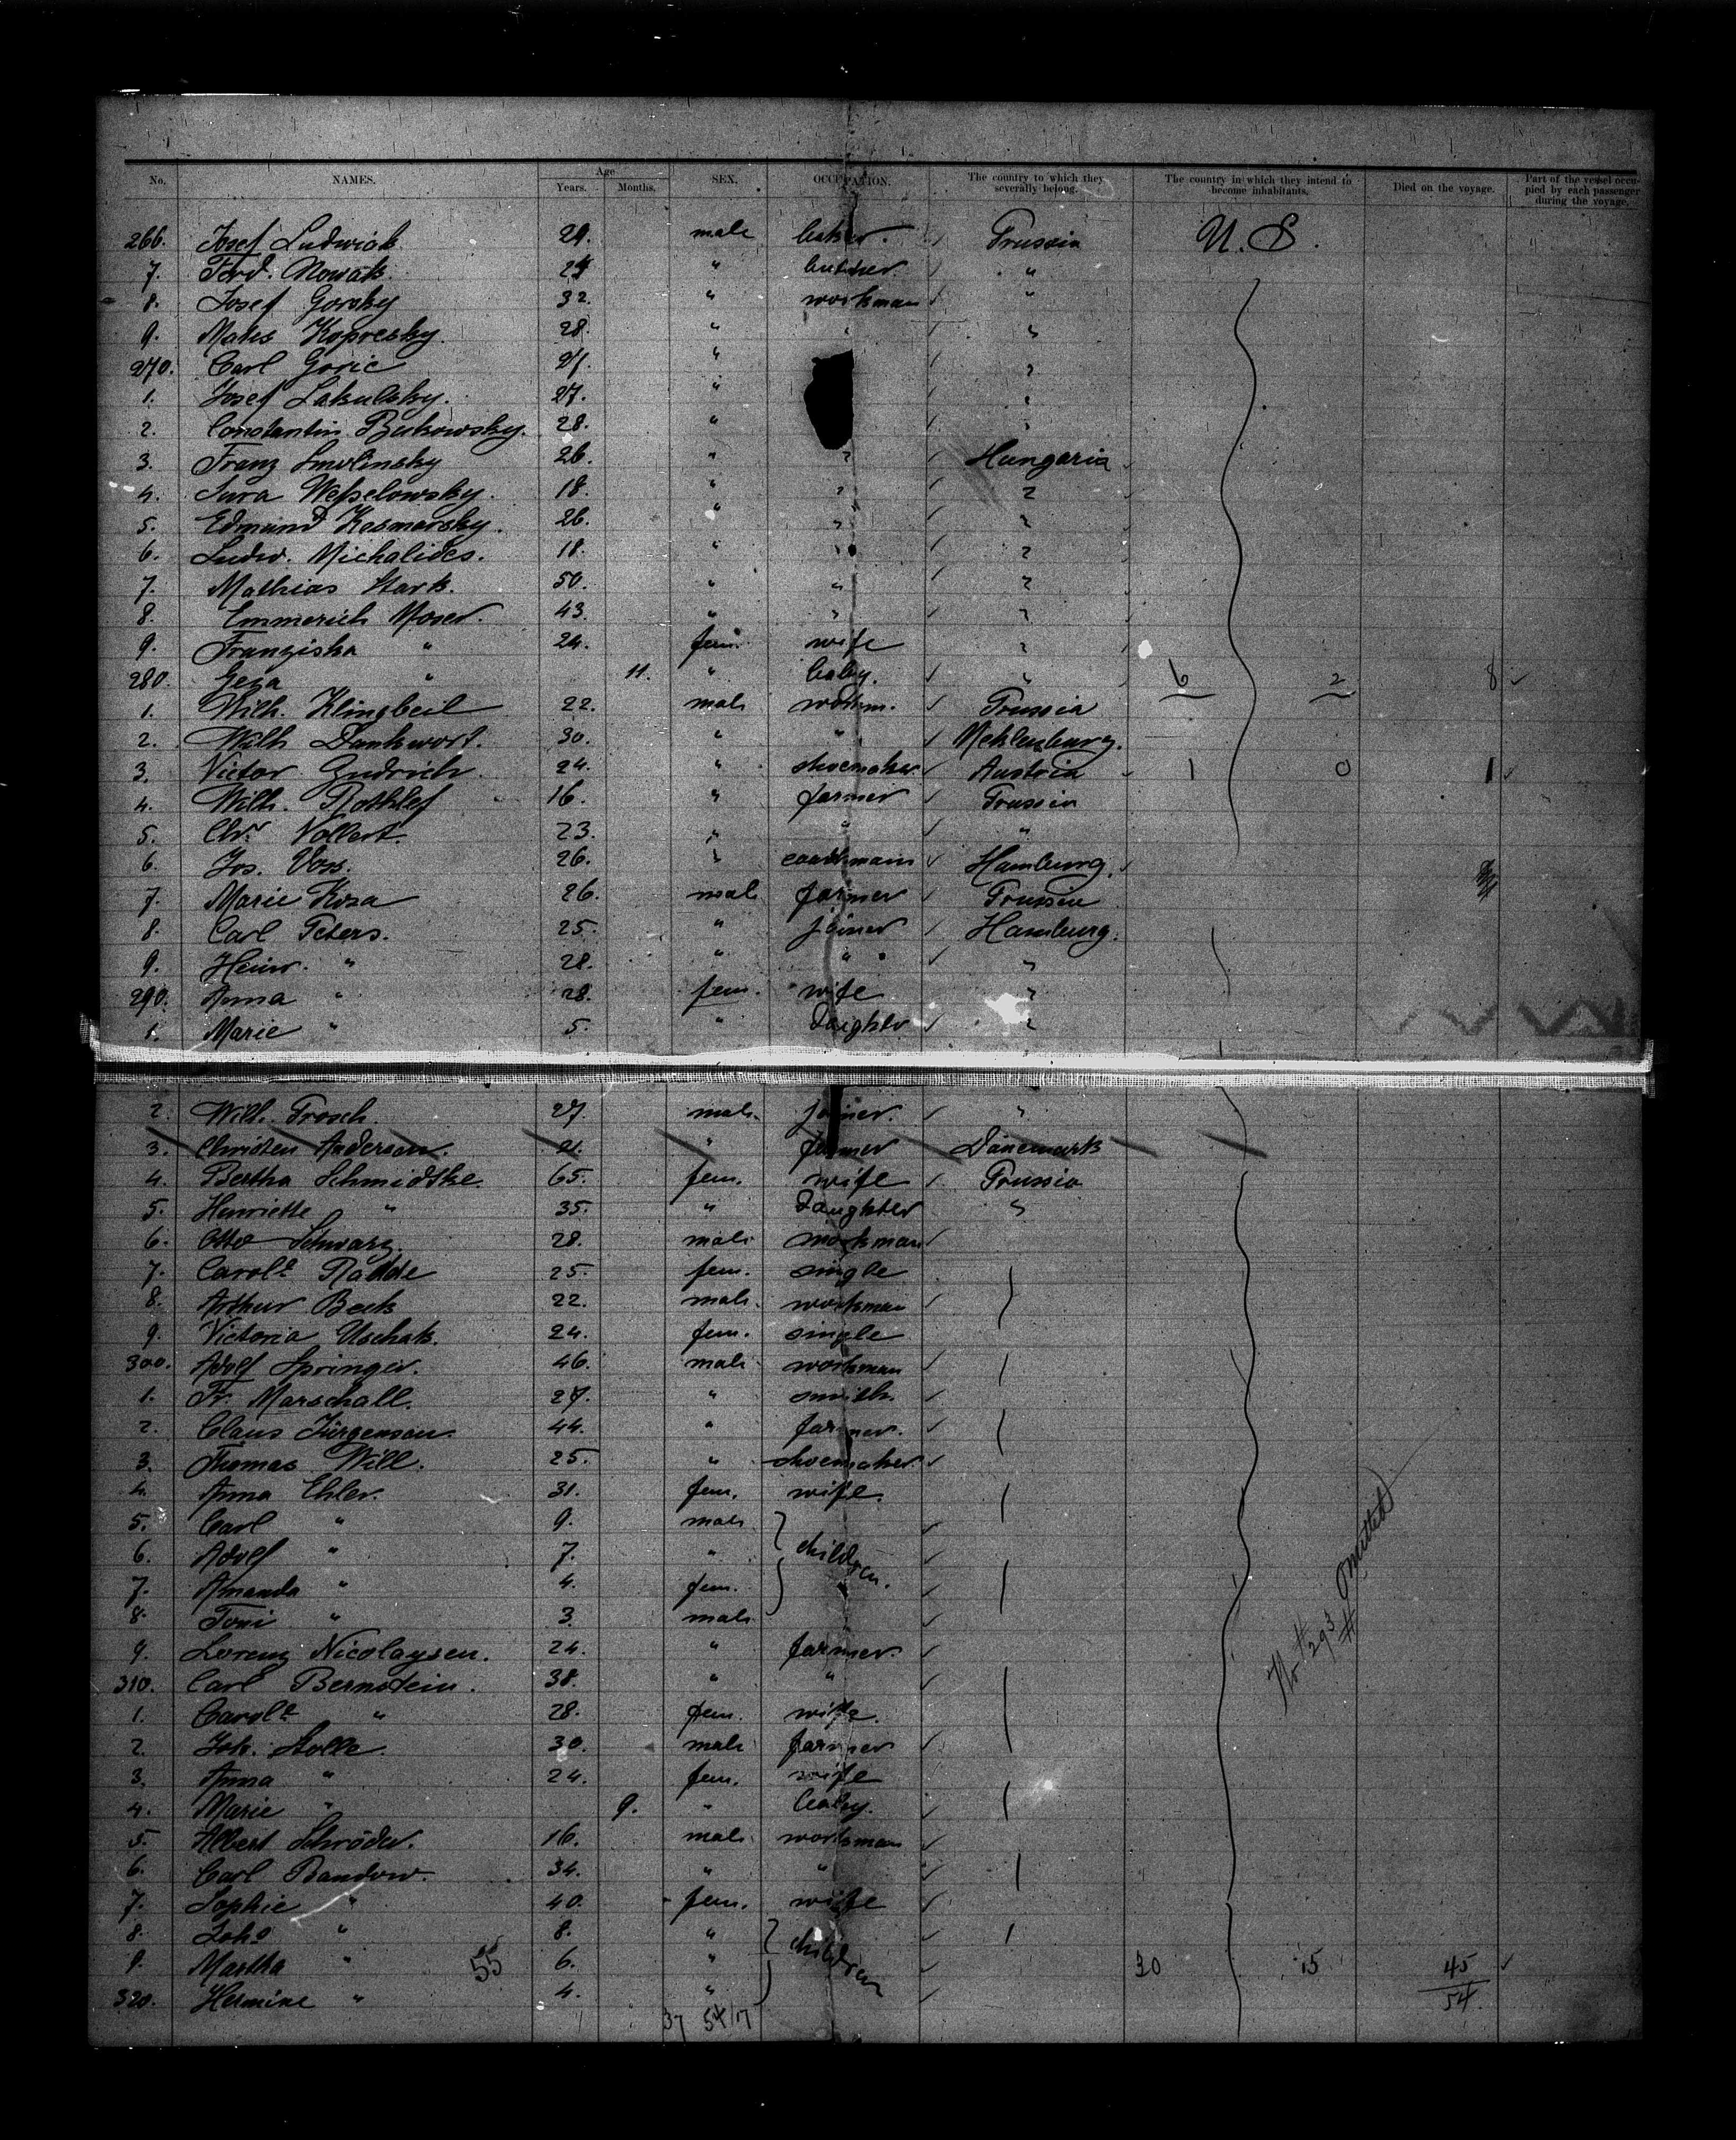 No. NAMES. Age Years. Months. SEX. OCCUPATION. The country to which they severally belong. The country in which they intend to become inhabitants. Died on the voyage. Part of the vessel occupied by each passenger during the voyage.
266. Josef Ludwick 29. male baker. Prussia U.S.
7. Ferd. Nowak. 24 " butcher. "
8. Josef Gorsky 32. " workman "
9. Mates Kopresky. 28. " " "
270. Carl Goric 27. " "
1. Josef Lakulsky. 27. " "
2. Constantin Bukowsky. 28. " "
3. Franz Smolinsky 26. " " Hungaria
4. Sura Wesselowsky. 18. " " "
5. Edmund Kesmarsky. 26. " " "
6. Ludw. Michalides. 18. " " "
7. Mathias Stark. 50. " " "
8. Emmerich Moser. 43. " " "
9. Franziska " 24. fem. wife "
280. Geza " 11. " baby. " 6 2 8
1. Wilh. Klingbeil 22. male workm. Prussia
2. Wilh Dankwort. 30. " " Meklenburg.
3. Victor Gudrich. 24. " shoemaker Austria 1 0 1
4. Wilh. Rothlef 16. " farmer Prussia
5. Chr. Vollert. 23. " " "
6. Jos. Voss. 26. " coachmain Hamburg.
7. Marie Koza 26. male farmer Prussia
8. Carl Peters. 25. " joiner Hamburg.
9. Heinr. " 28. " " "
290. Anna " 28. fem. wife "
1. Marie " 5. " Daighter "
2. Wilh. Frosch. 27. male joiner. "
3. Christen Andersen. 21. " farmer Dänemark
4. Bertha Schmidtke. 65. fem. wife Prussia
5. Henriette " 35. " Daughter "
6. Otto Schwarz. 28. male workman
7. Carole Radde 25. fem. single
8. Arthur Beck 22. male. workman
9. Victoria Uschak. 24. fem. single
300. Adolf Springer. 46. male workman
1. Fr. Marschall. 27. " smith.
2. Claus Jürgensen. 44. " farmer.
3. Thomas Will. 25. " shoemaker.
4. Anna Ehler. 31. fem. wife.
5. Carl " 9. male
6. Adolf " 7. " children.
7. Amanda " 4. fem.
8. Toni " 3. male
9. Lorenz Nicolaysen. 24. " farmer.
310. Carl Bernstein. 38. " "
1. Carole " 28. fem. wife.
2. Joh. Stolle. 30. male farmer
3. Anna " 24. fem. wife
4. Marie " 9. " baby.
5. Albert Schröder. 16. male workman
6. Carl Bandow. 34. " "
7. Sophie " 40. fem. wife
8. Johs " 8. "
9. Martha " 55 6. " children 30 15 45
320. Hermine " 4. " 54
37 54/17
No # 293 omitted
#